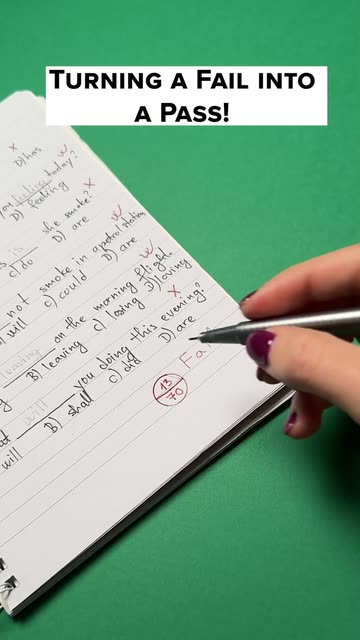 TURNING A FAIL INTO
A PASS!
D) has
you feeling today?
D) feeling
she smoke?
is
C) do D) are
not smoke in a petrol station
will C) could D) are
leaving on the morning flight
B) leaving C) losing D) loving
will you doing this evening?
will B) shall C) did D) are
Fai
13
70